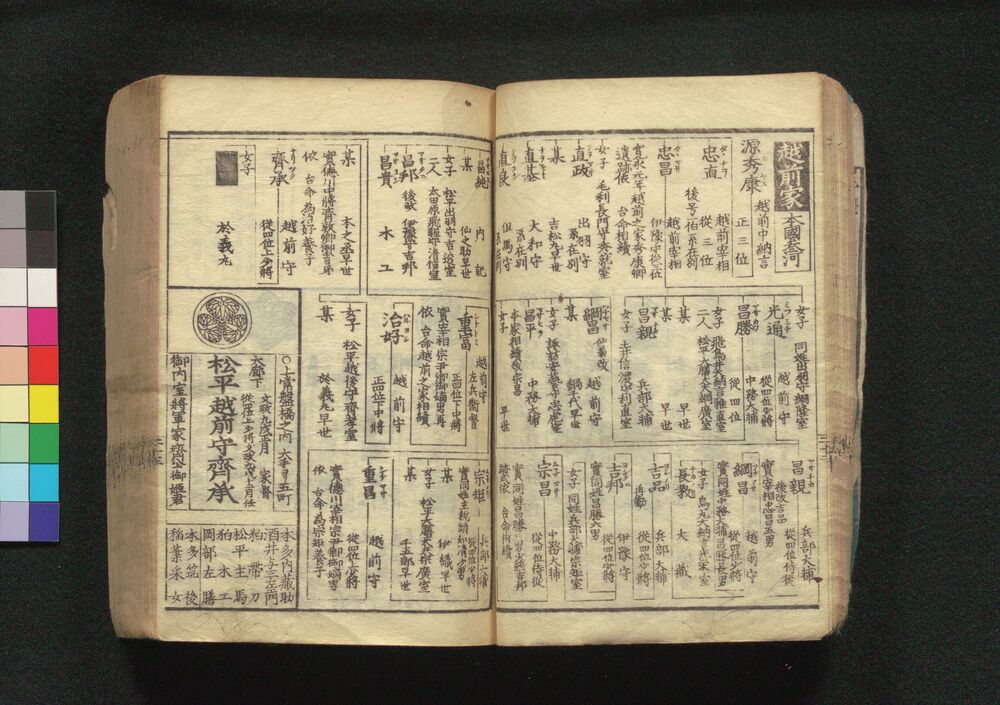 越前家
本國参河
源秀康
越前中納言
正三位
忠直
越前宰相
從三位
後号一伯系在別
忠昌
伊豫守從四位
越前宰相
寛永元年越前之家秀康卿
遺跡依 台命相續
女子 毛利長門守秀就室
直政
出羽守
系在別
某
吉松丸早世
直基
大和守
系在別
直良
但馬守
昌純
内記
某
仙之助早世
女子 松平出羽守吉透室
二人 太田原飛騨守清信室
昌邦
後改 伊豫守吉邦
昌貴
木工
某
本之丞早世
實德川中將齊敦卿御舎弟
依 台命為治好養子
齊承
越前守
從四位上少將
女子
於義丸
女子 同姓出羽守綱隆室
光通
越前守
從四位少將
昌勝
中務大輔
從四位
女子 飛鳥井大納言雅直室
二人 松平大膳大夫綱廣室
某 早世
某 早世
昌親
兵部大輔
女子 土井信濃守利直室
綱昌
仙菊改
越前守
某 鍋千代早世
女子 諏訪安藝守忠虎室
昌平
中務大輔
本家相續改宗昌
女子 早世
重富
越前守
左兵衛督
正四位下中將
實宰相宗尹卿御嫡男再
依 台命越前之家相續
治好
越前守
正四位下中將
女子 松平越後守齊孝室
某 於義丸早世
昌親
後改吉品
兵部大輔
從四位侍從
實宰相忠昌五男
綱昌
越前守
從四位少將
實同姓中務大輔昌勝長男
女子 烏丸大納言光栄室
長教 大蔵
吉品
再勤
兵部大輔
從四位少將
吉邦
伊豫守
從四位少將
實同姓昌勝六男
女子 同姓兵部大輔宗矩室
宗昌
中務大輔
從四位侍從
實同姓昌勝二男少將吉邦
跡式依 台命相續
宗矩
兵部大輔
從四位少將
實同姓主税頭知清二男
某 伊織早世
女子 松平大膳大夫宗廣室
某 千五郎早世
重昌
越前守
從四位少將
實德川宰相宗尹卿御嫡男
依 台命為宗矩養子
〇上常盤橋之内 大手ヨリ五町
大廊下
文政九戌正月 家督
松平越前守齊承
御内室將軍家齊公御姬君
本多内藏助
酒井与三左衛門
狛帶刀
松平主馬
狛木工
岡部左膳
本多筑後
稲葉采女